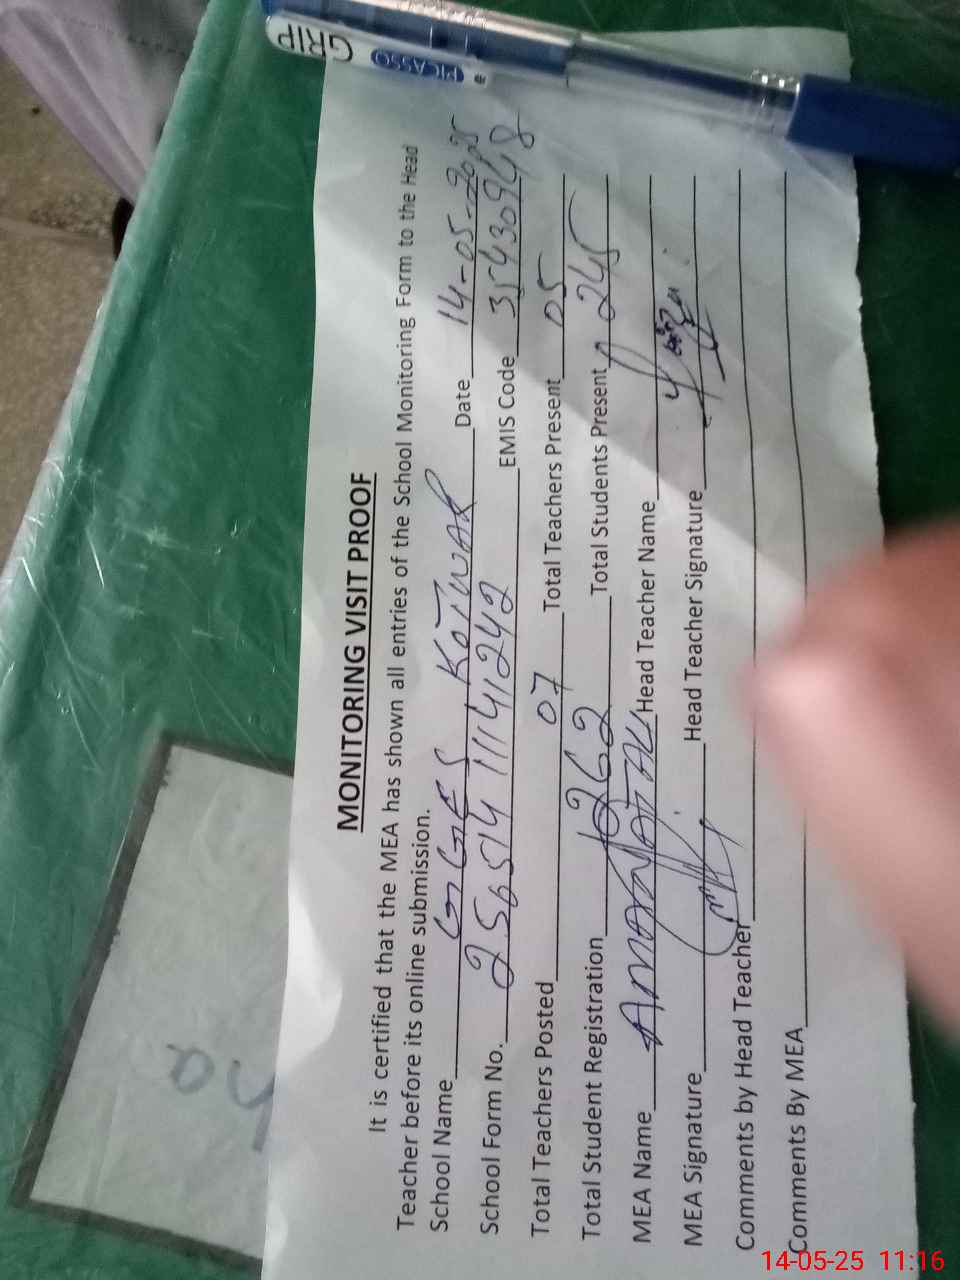 PICASSO
GRIP
MONITORING VISIT PROOF
It is certified that the MEA has shown all entries of the School Monitoring Form to the Head
Teacher before its online submission.
School Name GGES KOTWAR Date 14-05-2025
School Form No. 2565141114141242 EMIS Code 35430948
Total Teachers Posted 07 Total Teachers Present 05
Total Student Registration 262 Total Students Present 245
MEA Name Head Teacher Name
MEA Signature Head Teacher Signature
Comments by Head Teacher
Comments By MEA
14-05-25 11:16